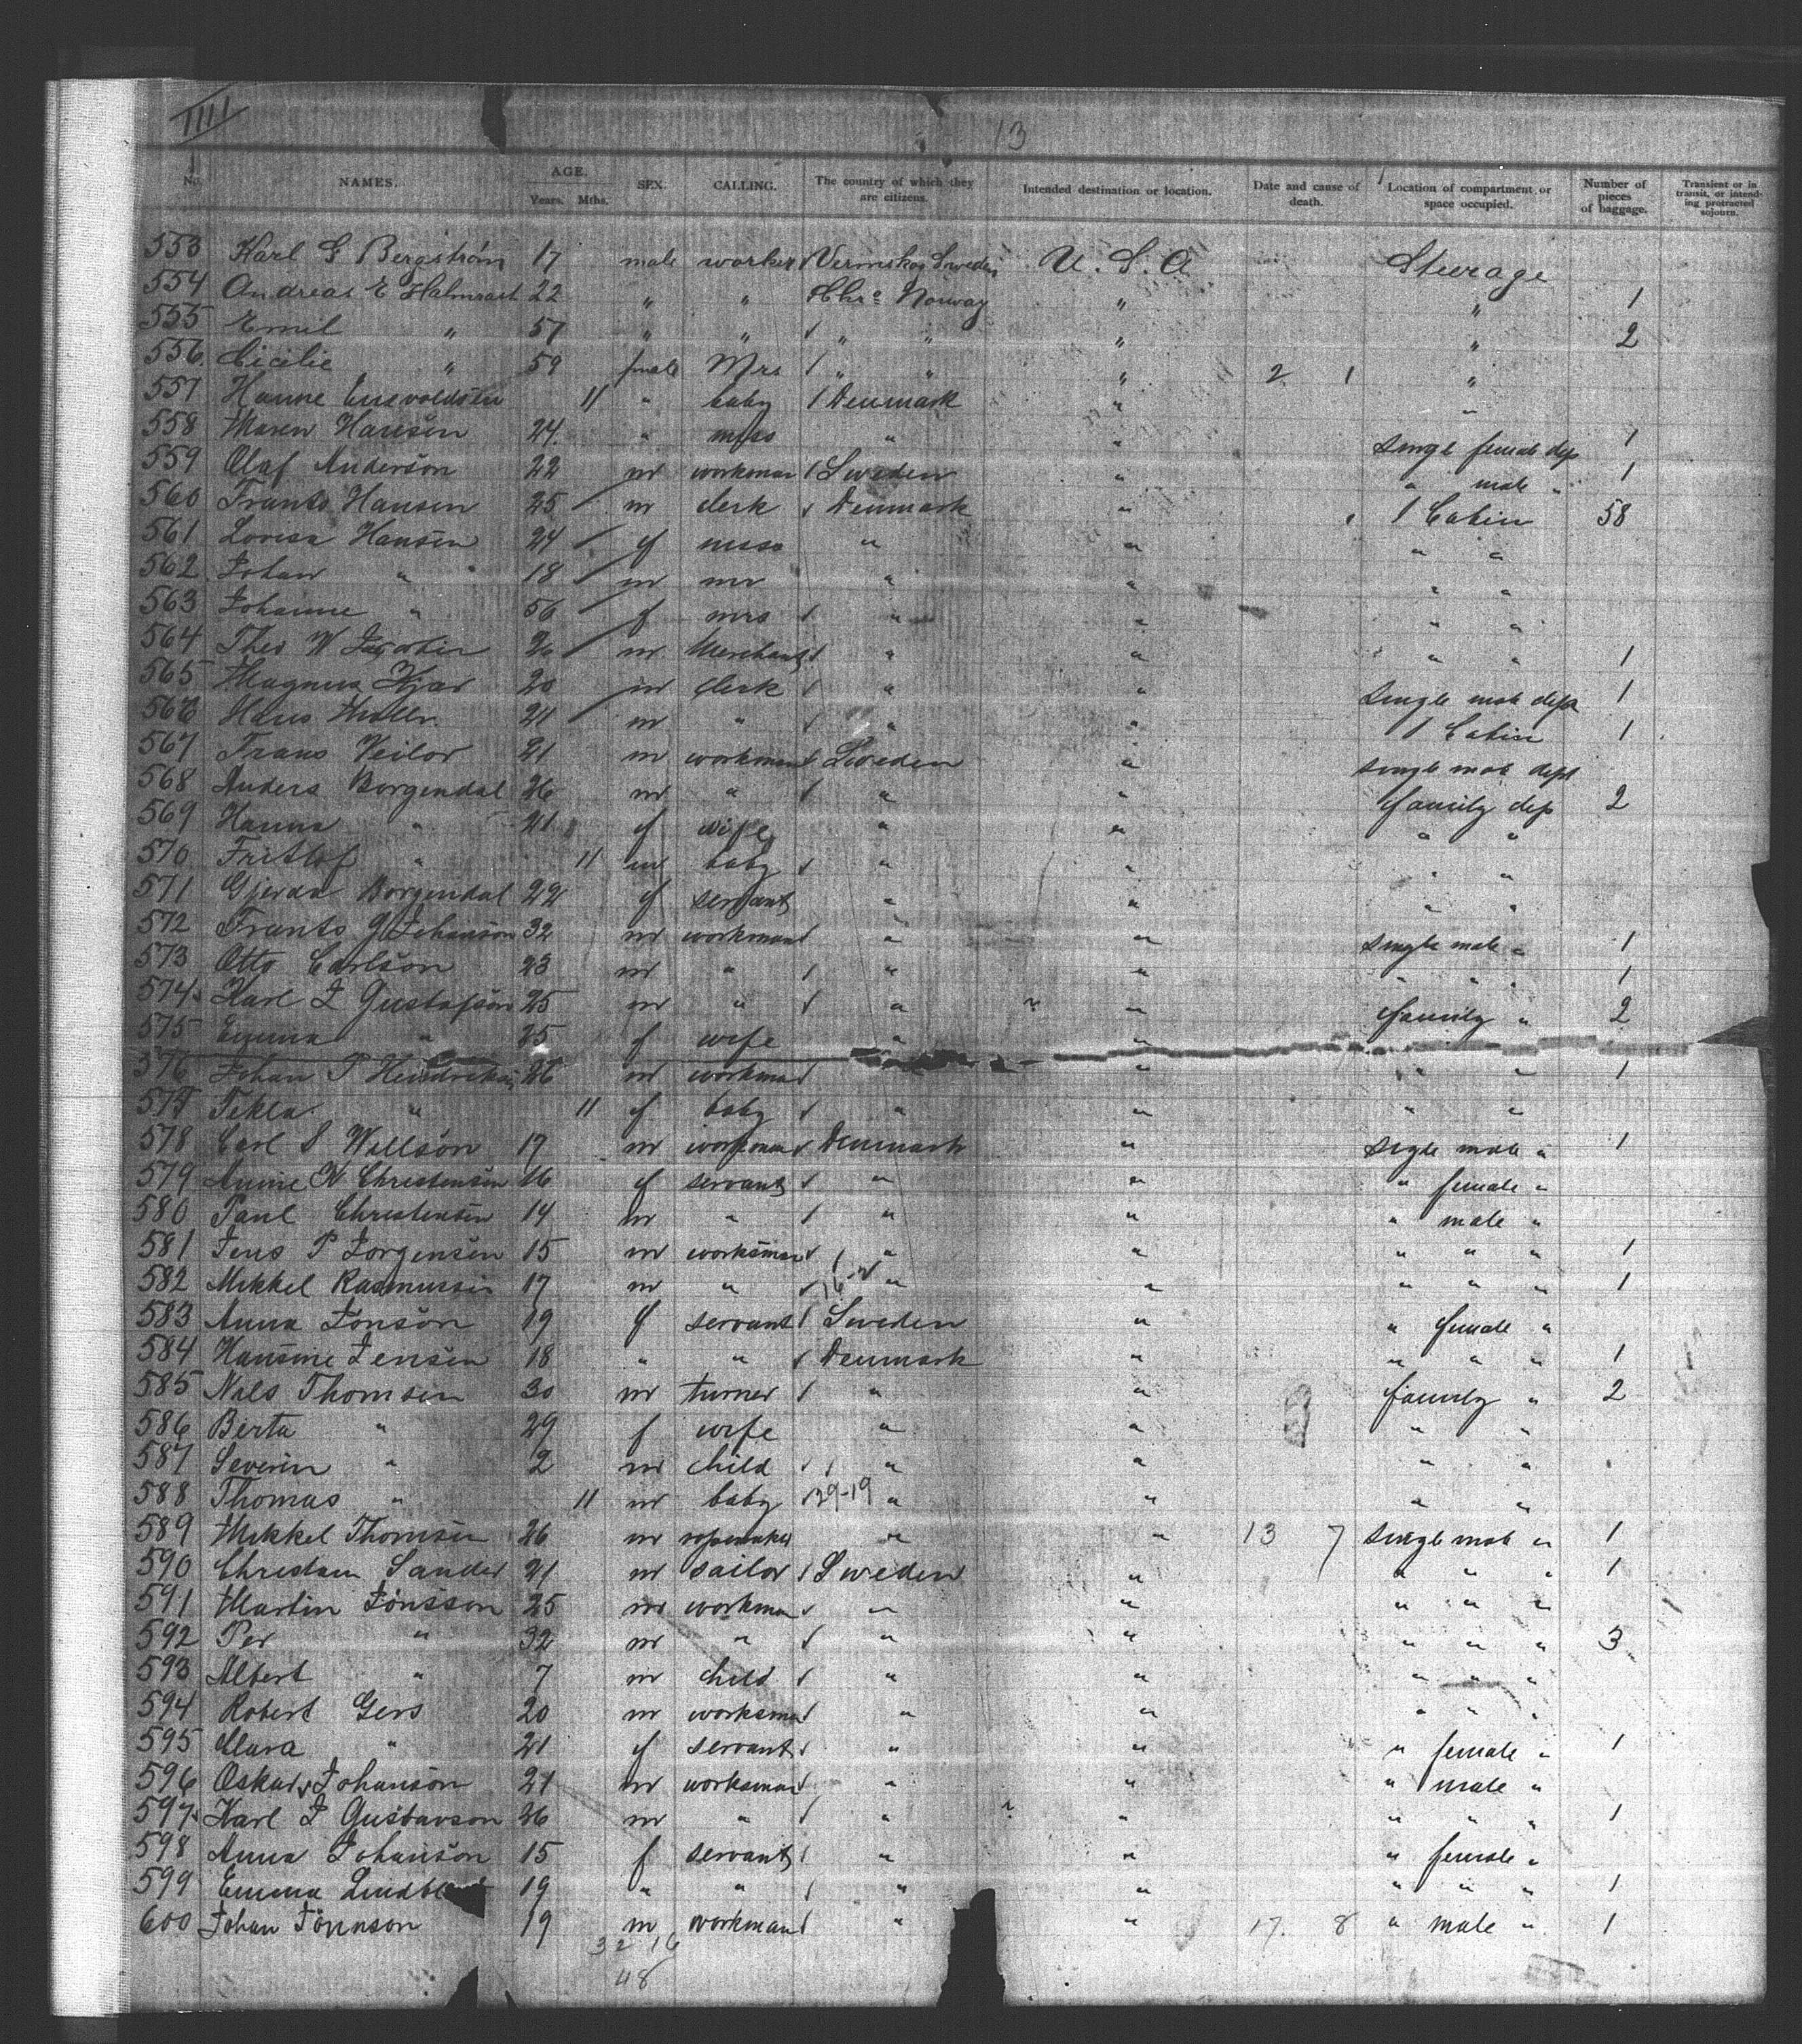 IIII
13
No. NAMES. AGE. Years. Mths. SEX. CALLING. The country of which they are citizens. Intended destination or location. Date and cause of death. Location of compartment or space occupied. Number of pieces of baggage. Transient or in transit, or intending protracted sojourn.
553 Karl G Bergström 17 male worker Sweden U.S.A Steerage
554 Andreas E 22 " " Chra Norway " " 1
555 Emil " 57 " " " " " " 2
556 Cicilie " 59 female Mrs " " " 2 1 "
557 Hanne 11 " baby Denmark " "
558 Maren Hansen 24 " miss " " single female dep 1
559 Olaf Anderson 22 m workman Sweden " " male " 1
560 Frants Hansen 25 m clerk Denmark " 1 Cabin 58
561 Lovisa Hansen 24 f miss " " " "
562 Johan " 18 m mr " " " "
563 Johanne " 56 f mrs " " " "
564 Theo W 26 m Merchant " " " " 1
565 Magnus Kjær 20 m clerk " " single male dep 1
566 Hans Møller 21 m " " " 1 Cabin 1
567 Frans Veilor 21 m workman Sweden " single male dept
568 Anders Borgendal 26 m " " " family dep 2
569 Hanna " 21 f wife " " " "
570 Fritlof " 11 m baby " " " "
571 Gjerda Borgendal 22 f servant " " " "
572 Frants G Johanson 32 m workman " " single male " 1
573 Otto Carlson 23 m " " " " " " 1
574 Karl J Gustafson 25 m " " " family " 2
575 Emma " 25 f wife " "
576 Johan P 26 m workman " " " 1
577 Tekla " 11 f baby " " " "
578 Carl S Willson 17 m workman Denmark " single male " 1
579 Anine K Christensen 16 f servant " " " female "
580 Paul Christensen 14 m " " " " male "
581 Jens P Jorgensen 15 m worksman " " " " " 1
582 Mikkel Rasmussen 17 m " " " " " " 1
583 Anna Jonson 19 f servant Sweden " " female "
584 Hansine Jensen 18 " " Denmark " " " " 1
585 Nils Thomsen 30 m turner " " family " 2
586 Berta " 29 f wife " " " "
587 Severin " 2 m child " " " "
588 Thomas " 11 m baby 29-19 " " " "
589 Mikkel Thomsen 26 m ropemaker " " 13 7 single male " 1
590 Christian Sander 21 m sailor Sweden " " " " 1
591 Martin Jönsson 25 m workman " " " " "
592 Per " 32 m " " " " " " 3
593 Albert " 7 m child " " " " "
594 Robert Gers 20 m worksman " " " " "
595 Clara " 21 f servant " " " female " 1
596 Oskar Johanson 21 m worksman " " " male "
597 Karl J Gustavson 26 m " " " " " " 1
598 Anna Johanson 15 f servant " " " female "
599 Emma 19 " " " " " " " 1
600 Johan Jönnson 19 m workman " " 17. 8 " male " 1
32 16
48